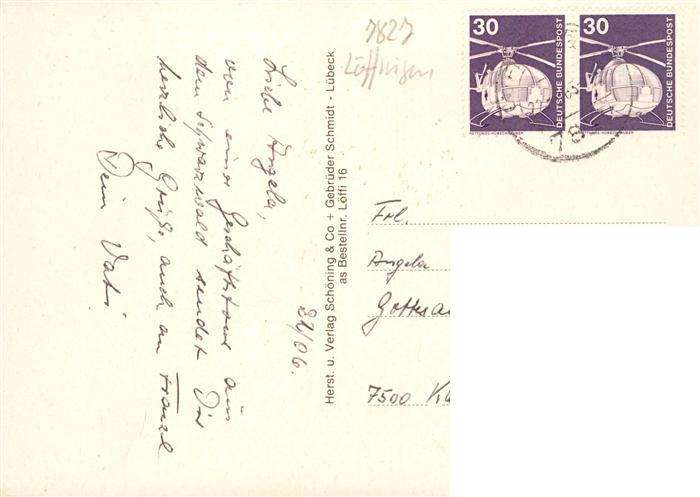 7827
Löffingen
30
DEUTSCHE BUNDESPOST
30
DEUTSCHE BUNDESPOST
22/06.
Liebe Angela,
von einer Geschäftstour aus
dem Schwarzwald sendet Dir
herzliche Grüße, auch an Franzel
Dein Vati
Herst. u. Verlag Schöning & Co + Gebrüder Schmidt - Lübeck
as Bestellnr. Löffi 16
Frl.
Angela
Gottesau
7500 Ka